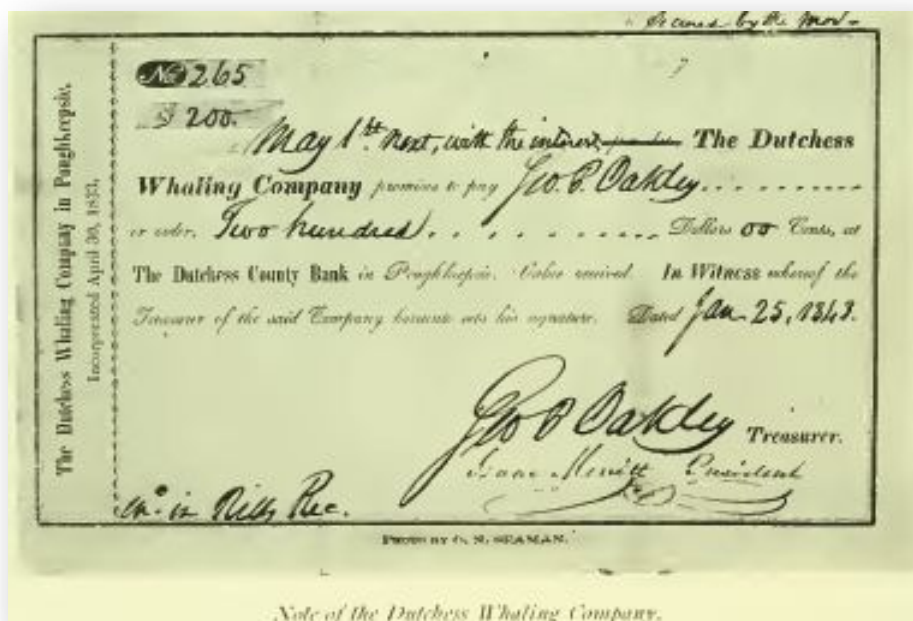 Secured by the Mor-
The Dutchess Whaling Company in Poughkeepsie,
Incorporated April 30, 1833,
No 265
$ 200.
May 1st next, with the interest, The Dutchess
Whaling Company promise to pay Geo. P. Oakley
or order, Two hundred Dollars 00 Cents, at
The Dutchess County Bank in Poughkeepsie. Value received. In Witness whereof the
Treasurer of the said Company hereunto sets his signature. Dated Jan 25, 1848.
Geo P Oakley Treasurer.
Isaac Merritt President
in Bills Rec.
PHOTO BY C. N. SEAMAN.
Note of the Dutchess Whaling Company.